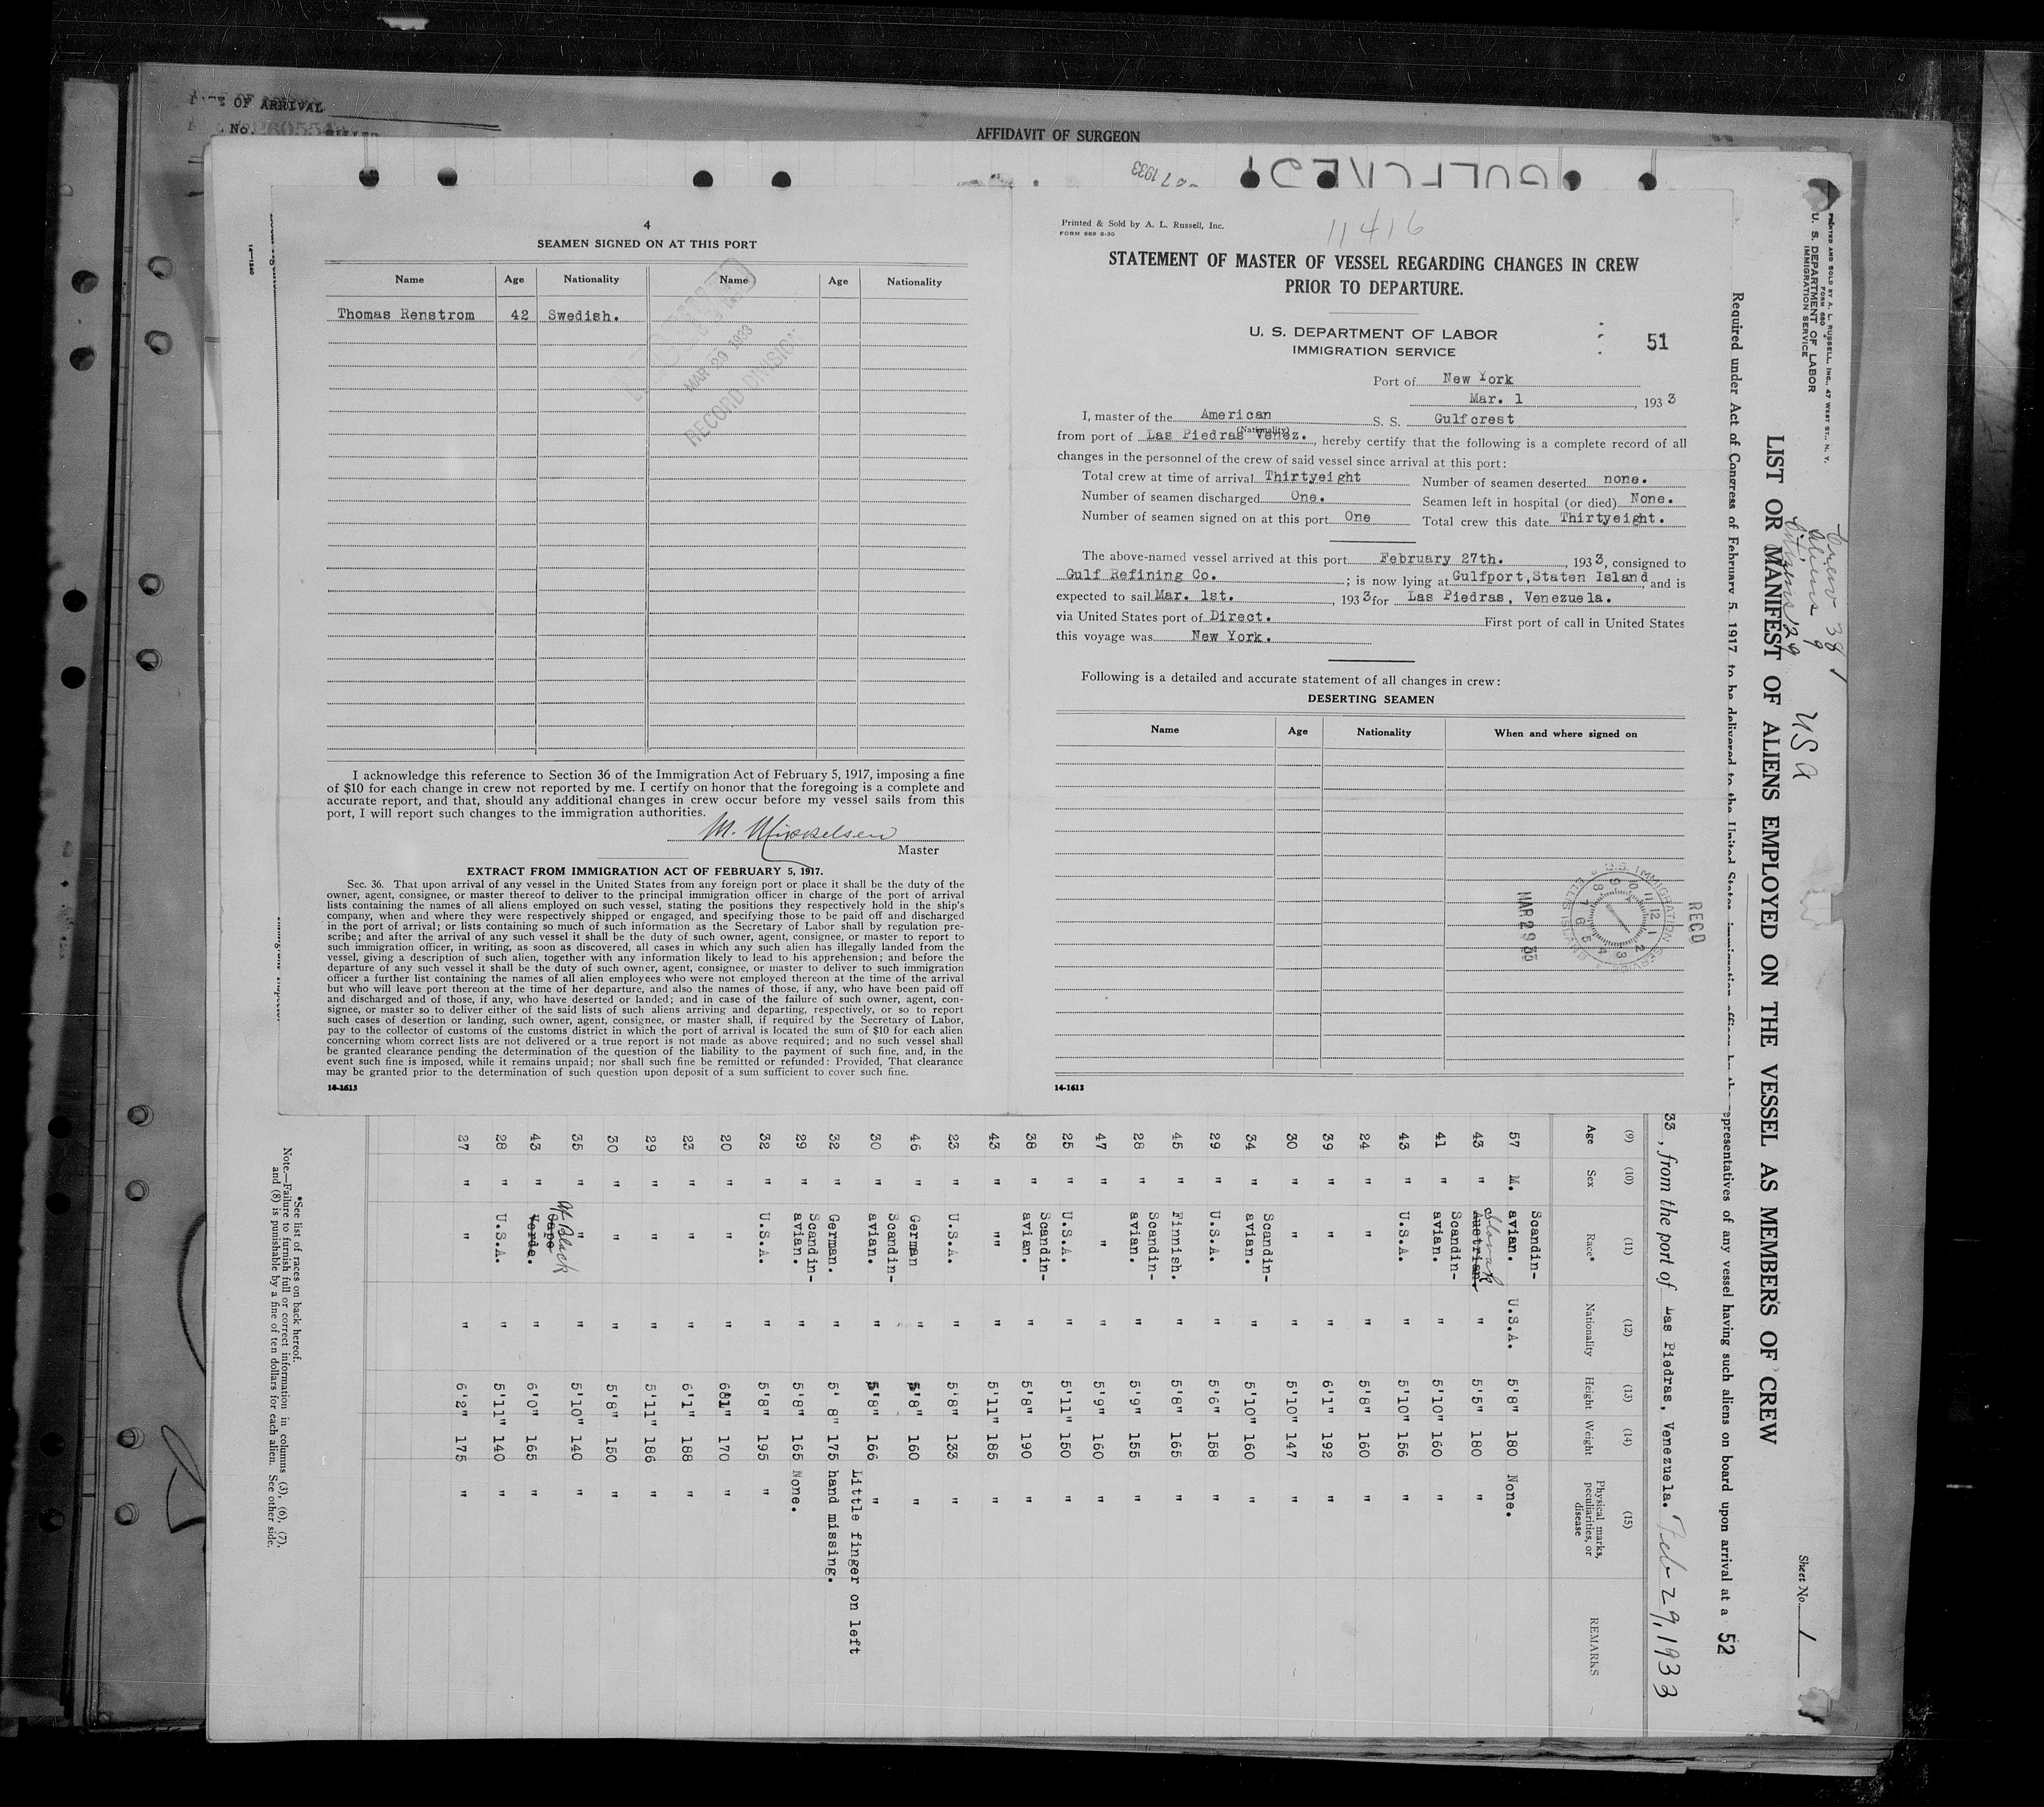 DATE OF ARRIVAL
No.
AFFIDAVIT OF SURGEON
GULFCREST
1933
4
SEAMEN SIGNED ON AT THIS PORT
Name Age Nationality Name Age Nationality
Thomas Renstrom 42 Swedish.
MAR 29 1933
RECORD DIVISION
I acknowledge this reference to Section 36 of the Immigration Act of February 5, 1917, imposing a fine
of $10 for each change in crew not reported by me. I certify on honor that the foregoing is a complete and
accurate report, and that, should any additional changes in crew occur before my vessel sails from this
port, I will report such changes to the immigration authorities.
M. Mikkelsen
Master
EXTRACT FROM IMMIGRATION ACT OF FEBRUARY 5, 1917.
Sec. 36. That upon arrival of any vessel in the United States from any foreign port or place it shall be the duty of the
owner, agent, consignee, or master thereof to deliver to the principal immigration officer in charge of the port of arrival
lists containing the names of all aliens employed on such vessel, stating the positions they respectively hold in the ship's
company, when and where they were respectively shipped or engaged, and specifying those to be paid off and discharged
in the port of arrival; or lists containing so much of such information as the Secretary of Labor shall by regulation pre-
scribe; and after the arrival of any such vessel it shall be the duty of such owner, agent, consignee, or master to report to
such immigration officer, in writing, as soon as discovered, all cases in which any such alien has illegally landed from the
vessel, giving a description of such alien, together with any information likely to lead to his apprehension; and before the
departure of any such vessel it shall be the duty of such owner, agent, consignee, or master to deliver to such immigration
officer a further list containing the names of all alien employees who were not employed thereon at the time of the arrival
but who will leave port thereon at the time of her departure, and also the names of those, if any, who have been paid off
and discharged and of those, if any, who have deserted or landed; and in case of the failure of such owner, agent, con-
signee, or master so to deliver either of the said lists of such aliens arriving and departing, respectively, or so to report
such cases of desertion or landing, such owner, agent, consignee, or master shall, if required by the Secretary of Labor,
pay to the collector of customs of the customs district in which the port of arrival is located the sum of $10 for each alien
concerning whom correct lists are not delivered or a true report is not made as above required; and no such vessel shall
be granted clearance pending the determination of the question of the liability to the payment of such fine, and, in the
event such fine is imposed, while it remains unpaid; nor shall such fine be remitted or refunded: Provided, That clearance
may be granted prior to the determination of such question upon deposit of a sum sufficient to cover such fine.
14-1613
Printed & Sold by A. L. Russell, Inc.
FORM 689 8-30
11416
STATEMENT OF MASTER OF VESSEL REGARDING CHANGES IN CREW
PRIOR TO DEPARTURE.
U. S. DEPARTMENT OF LABOR
IMMIGRATION SERVICE
51
Port of New York
Mar. 1, 1933
I, master of the American S. S. Gulfcrest
(Nationality)
from port of Las Piedras Venez., hereby certify that the following is a complete record of all
changes in the personnel of the crew of said vessel since arrival at this port:
Total crew at time of arrival Thirtyeight Number of seamen deserted none.
Number of seamen discharged One. Seamen left in hospital (or died) None.
Number of seamen signed on at this port One Total crew this date Thirtyeight.
The above-named vessel arrived at this port February 27th., 1933, consigned to
Gulf Refining Co.; is now lying at Gulfport, Staten Island and is
expected to sail Mar. 1st., 1933 for Las Piedras, Venezuela.
via United States port of Direct. First port of call in United States
this voyage was New York.
Following is a detailed and accurate statement of all changes in crew:
DESERTING SEAMEN
Name Age Nationality When and where signed on
REC'D
U.S. IMMIGRATION SERVICE ELLIS ISLAND
MAR 29 33
14-1613
PRINTED AND SOLD BY A. L. RUSSELL, INC., 47 WEST ST., N. Y.
FORM 680
U. S. DEPARTMENT OF LABOR
IMMIGRATION SERVICE
Crew 38
Aliens 9
Citizens 29
USA
Sheet No. 1
LIST OR MANIFEST OF ALIENS EMPLOYED ON THE VESSEL AS MEMBERS OF CREW
Required under Act of Congress of February 5, 1917, to be delivered to the United States immigration officer by the representatives of any vessel having such aliens on board upon arrival at a
52
33, from the port of Las Piedras, Venezuela. Feb 29, 1933
(9) (10) (11) (12) (13) (14) (15)
Age Sex Race* Nationality Height Weight Physical marks, peculiarities, or disease REMARKS
57 M. Scandin-avian. U.S.A. 5'8" 180 None.
43 " Austrian. Slovak " 5'5" 180 "
41 " Scandin-avian. " 5'10" 160 "
43 " U.S.A. " 5'10" 156 "
24 " " " 5'8" 160 "
39 " " " 6'1" 192 "
30 " " " 5'10" 147 "
34 " Scandin-avian. " 5'10" 160 "
29 " U.S.A. " 5'6" 158 "
45 " Finnish. " 5'8" 165 "
28 " Scandin-avian. " 5'9" 155 "
47 " " " 5'9" 160 "
25 " U.S.A. " 5'11" 150 "
38 " Scandin-avian. " 5'8" 190 "
43 " "" " 5'11" 185 "
23 " U.S.A. " 5'8" 133 "
46 " German " 5'8" 160 "
30 " Scandin-avian. " 5'8" 166 "
32 " German. " 5' 8" 175 Little finger on left hand missing.
29 " Scandin-avian. " 5'8" 165 None.
32 " U.S.A. " 5'8" 195 "
20 " " " 6'1" 170 "
23 " " " 6'1" 188 "
29 " " " 5'11" 186 "
30 " " " 5'8" 150 "
35 " " " 5'10" 140 "
43 " Cape Verde. Af. Black " 6'0" 165 "
28 " U.S.A. " 5'11" 140 "
27 " " " 6'2" 175 "
*See list of races on back hereof.
Note.—Failure to furnish full or correct information in columns (3), (6), (7),
and (8) is punishable by a fine of ten dollars for each alien. See other side.
14-1240